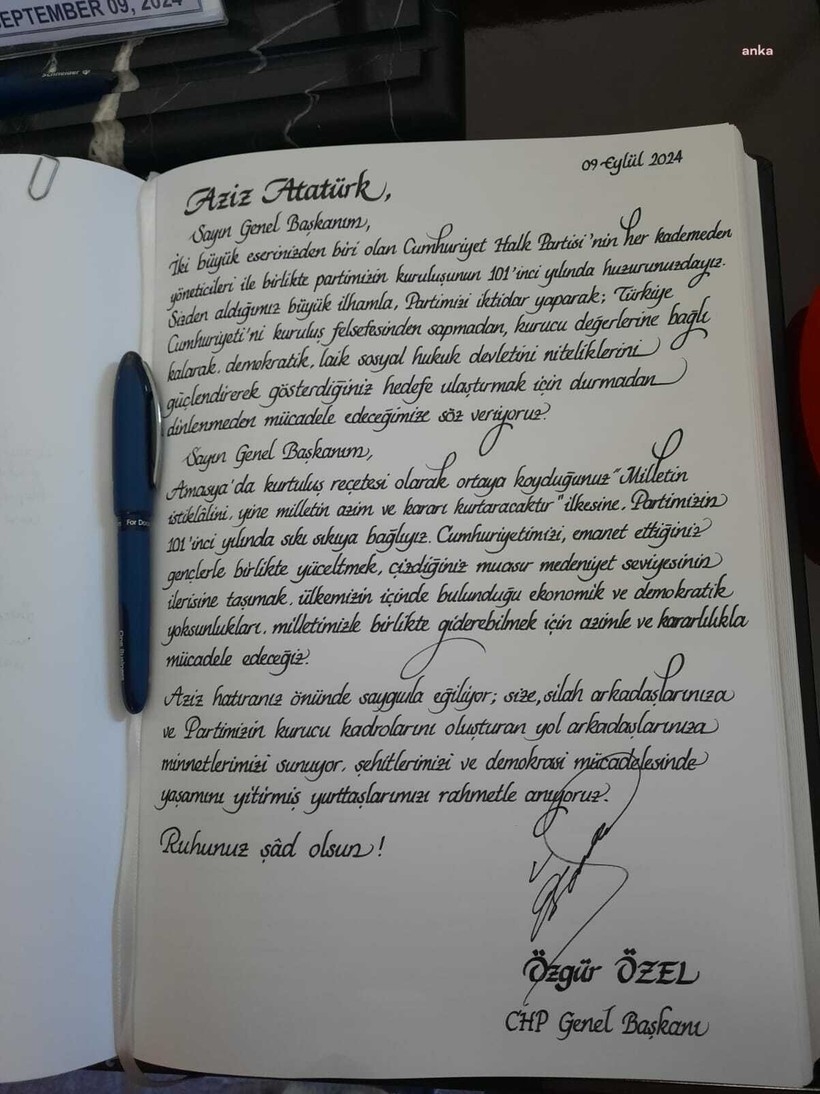 SEPTEMBER 09, 2024
Schneider
anka
09 Eylül 2024
Aziz Atatürk,
Sayın Genel Başkanım,
İki büyük eserinizden biri olan Cumhuriyet Halk Partisi'nin her kademeden
yöneticileri ile birlikte partimizin kuruluşunun 101'inci yılında huzurunuzdayız.
Sizden aldığımız büyük ilhamla, Partimizi iktidar yaparak; Türkiye
Cumhuriyeti'ni kuruluş felsefesinden sapmadan, kurucu değerlerine bağlı
kalarak, demokratik, laik sosyal hukuk devletini niteliklerini
güçlendirerek gösterdiğiniz hedefe ulaştırmak için durmadan
dinlenmeden mücadele edeceğimize söz veriyoruz.
Sayın Genel Başkanım,
Amasya'da kurtuluş reçetesi olarak ortaya koyduğunuz "Milletin
istiklâlini, yine milletin azim ve kararı kurtaracaktır" ilkesine, Partimizin
101'inci yılında sıkı sıkıya bağlıyız. Cumhuriyetimizi, emanet ettiğiniz
gençlerle birlikte yüceltmek, çizdiğiniz muasır medeniyet seviyesinin
ilerisine taşımak, ülkemizin içinde bulunduğu ekonomik ve demokratik
yoksunlukları, milletimizle birlikte giderebilmek için azimle ve kararlılıkla
mücadele edeceğiz.
Aziz hatıranız önünde saygıyla eğiliyor; size, silah arkadaşlarınıza
ve Partimizin kurucu kadrolarını oluşturan yol arkadaşlarınıza
minnetlerimizi sunuyor, şehitlerimizi ve demokrasi mücadelesinde
yaşamını yitirmiş yurttaşlarımızı rahmetle anıyoruz.
Ruhunuz şâd olsun!
Özgür ÖZEL
CHP Genel Başkanı